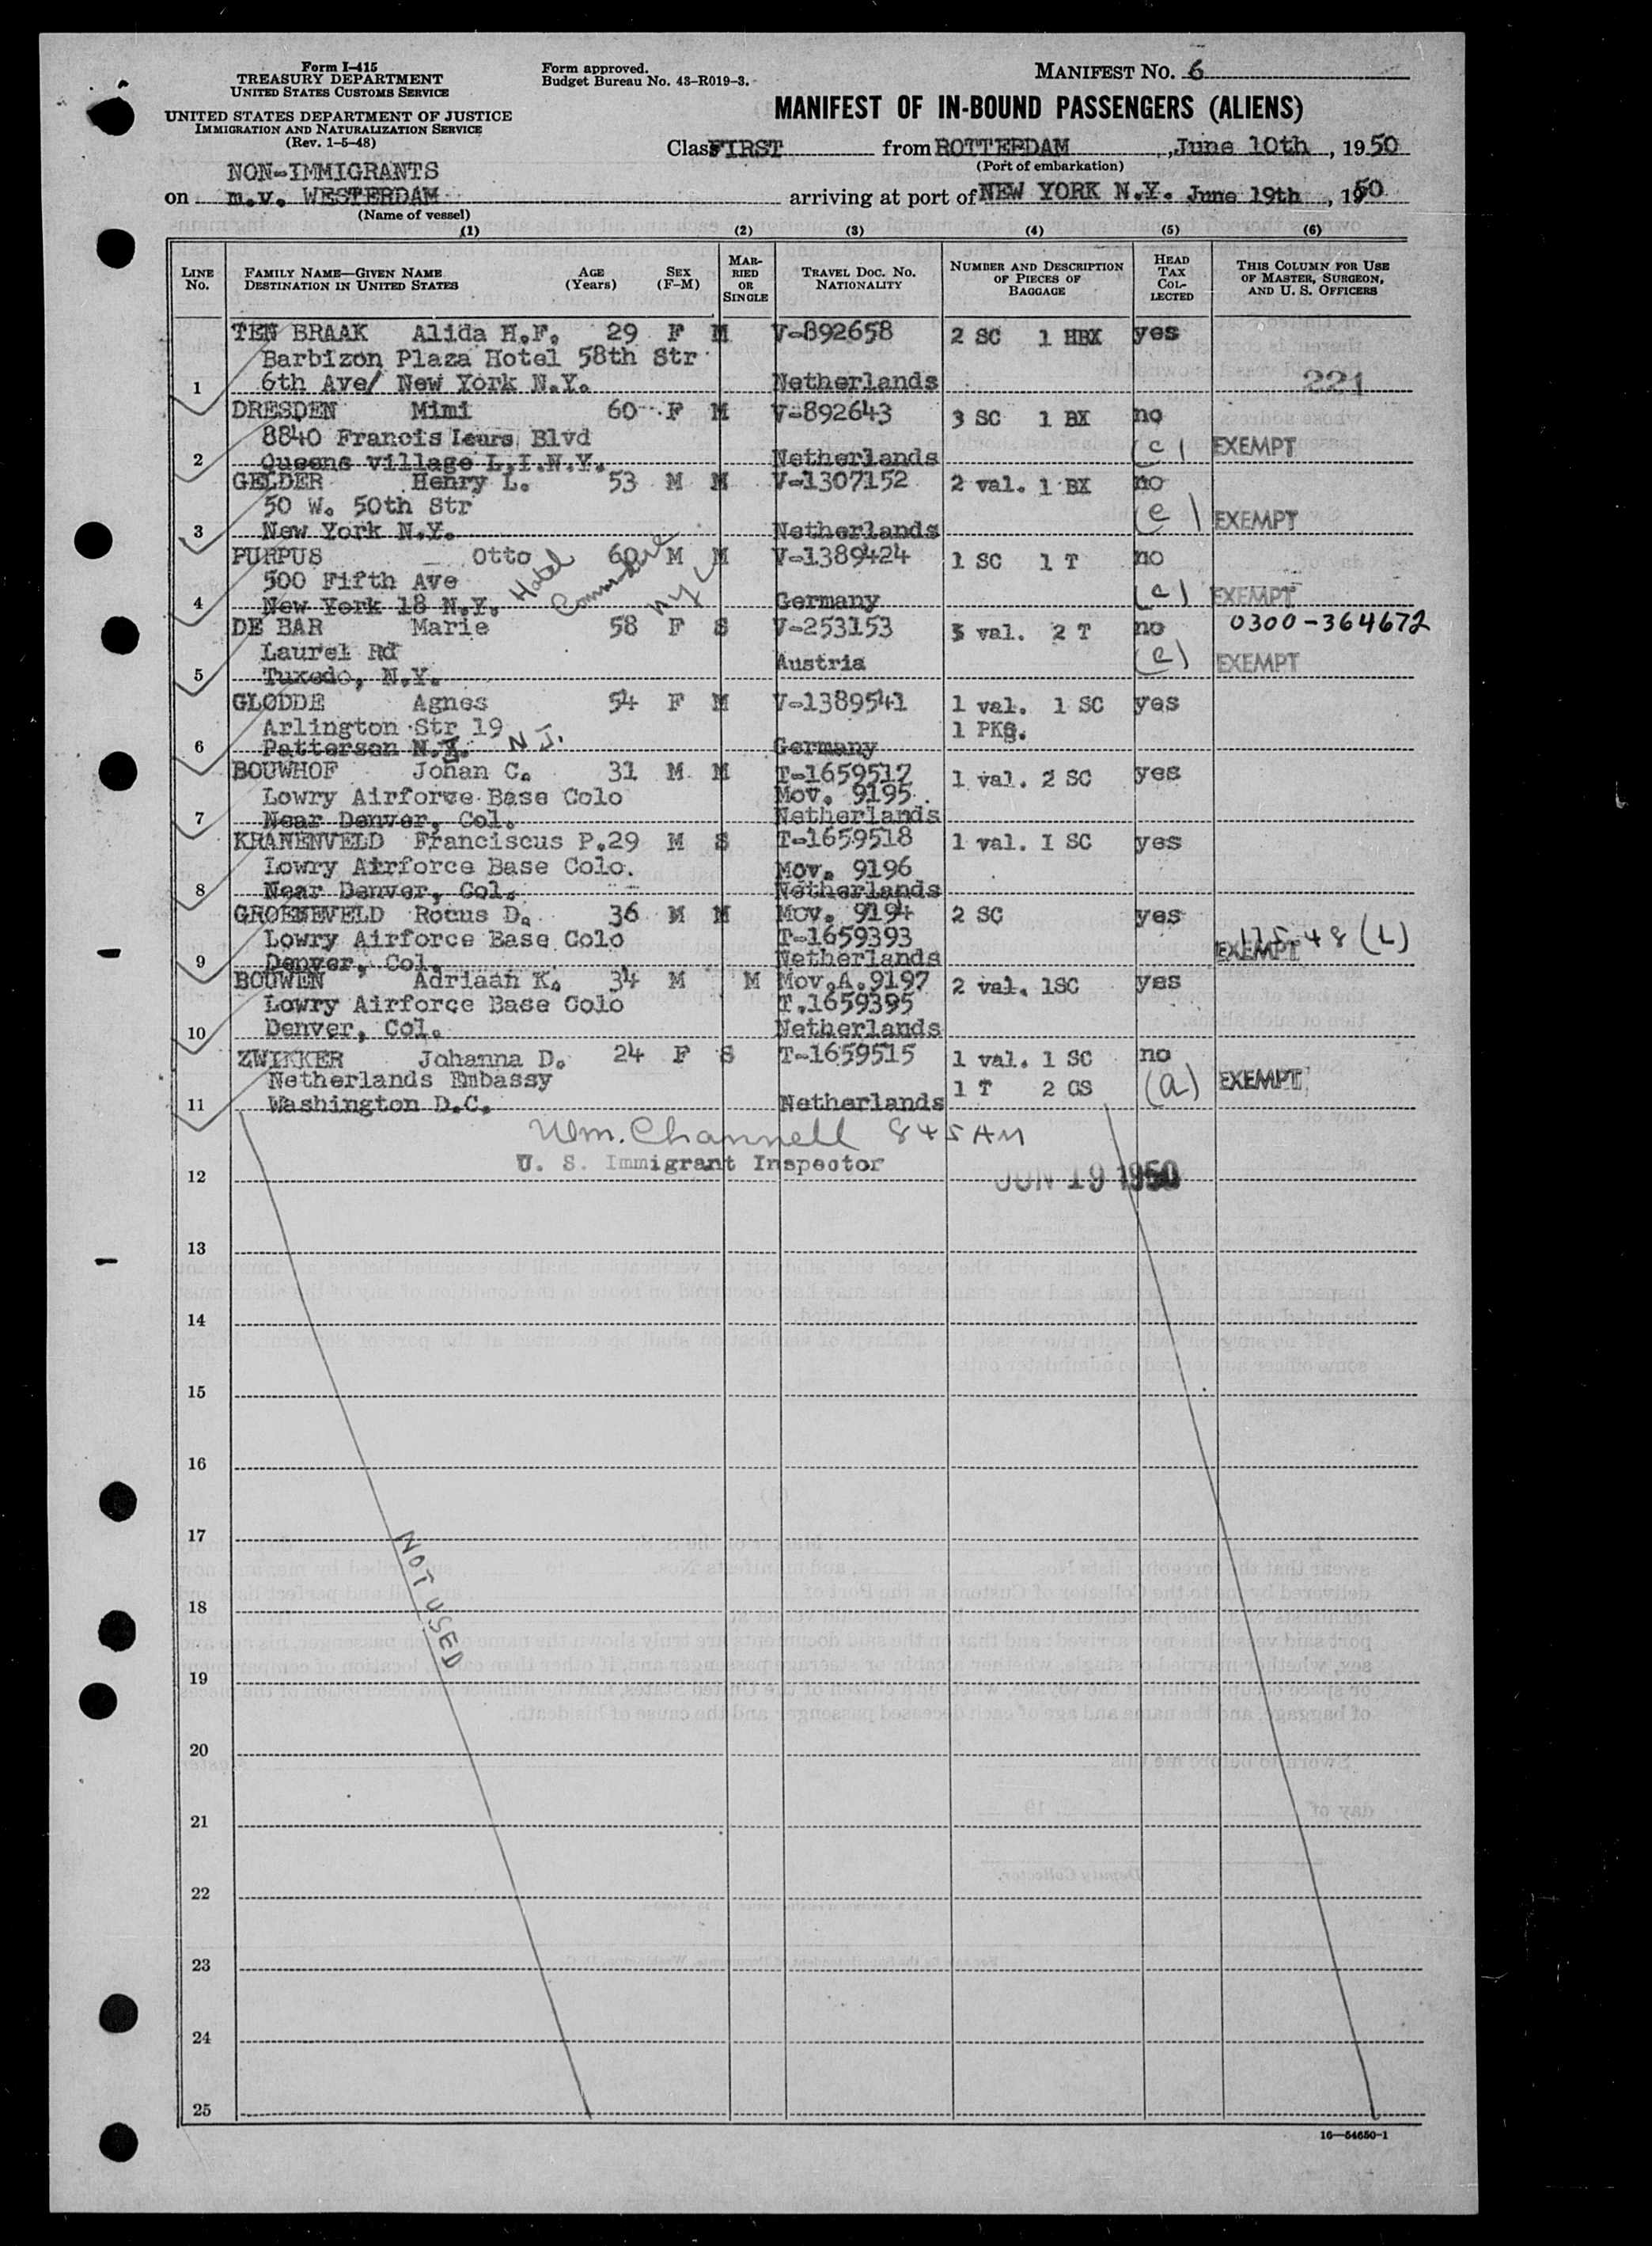 Form I-415
TREASURY DEPARTMENT
UNITED STATES CUSTOMS SERVICE
UNITED STATES DEPARTMENT OF JUSTICE
IMMIGRATION AND NATURALIZATION SERVICE
(Rev. 1-5-48)
Form approved.
Budget Bureau No. 43-R019-3.
MANIFEST NO. 6
MANIFEST OF IN-BOUND PASSENGERS (ALIENS)
Class FIRST from ROTTERDAM, June 10th, 1950
(Port of embarkation)
NON-IMMIGRANTS
on m.v. WESTERDAM arriving at port of NEW YORK N.Y. June 19th, 1950
(Name of vessel)
(1) (2) (3) (4) (5) (6)
LINE No. FAMILY NAME—GIVEN NAME DESTINATION IN UNITED STATES AGE (Years) SEX (F-M) MARRIED OR SINGLE TRAVEL DOC. NO. NATIONALITY NUMBER AND DESCRIPTION OF PIECES OF BAGGAGE HEAD TAX COLLECTED THIS COLUMN FOR USE OF MASTER, SURGEON, AND U. S. OFFICERS
TEN BRAAK Alida H.F. 29 F M V-892658 2 SC 1 HBX yes
Barbizon Plaza Hotel 58th Str
1 6th Ave/ New York N.Y. Netherlands 221
DRESDEN Mimi 60 F M V-892643 3 SC 1 BX no
8840 Francis Leurs Blvd (c) EXEMPT
2 Queens village L.I.N.Y. Netherlands
GELDER Henry L. 53 M M V-1307152 2 val. 1 BX no
50 W. 50th Str (c) EXEMPT
3 New York N.Y. Netherlands
PURPUS Otto 60 M M V-1389424 1 SC 1 T no
500 Fifth Ave Hotel Commodore NY
4 New York 18 N.Y. Germany (c) EXEMPT
DE BAR Marie 58 F S V-253153 3 val. 2 T no 0300-364672
Laurel Rd Austria (c) EXEMPT
5 Tuxedo, N.Y.
GLODDE Agnes 54 F M V-1389541 1 val. 1 SC yes
Arlington Str 19 1 PKG.
6 Patterson N.Y. N J. Germany
BOUWHOF Johan C. 31 M M T-1659517 1 val. 2 SC yes
Lowry Airforce Base Colo Mov. 9195
7 Near Denver, Col. Netherlands
KRANENVELD Franciscus P. 29 M S T-1659518 1 val. I SC yes
Lowry Airforce Base Colo. Mov. 9196
8 Near Denver, Col. Netherlands
GROENEVELD Rocus D. 36 M M Mov. 9194 2 SC yes
Lowry Airforce Base Colo T-1659393 EXEMPT 48 (L)
9 Denver, Col. Netherlands
BOUWEN Adriaan K. 34 M M Mov.A.9197 2 val. 1SC yes
Lowry Airforce Base Colo T.1659395
10 Denver, Col. Netherlands
ZWIKKER Johanna D. 24 F S T-1659515 1 val. 1 SC no
Netherlands Embassy 1 T 2 CS (a) EXEMPT
11 Washington D.C. Netherlands
Wm. Channell 845 AM
U. S. Immigrant Inspector
12 JUN 19 1950
13
14
15
16
17
NOT USED
18
19
20
21
22
23
24
25
16—54650-1